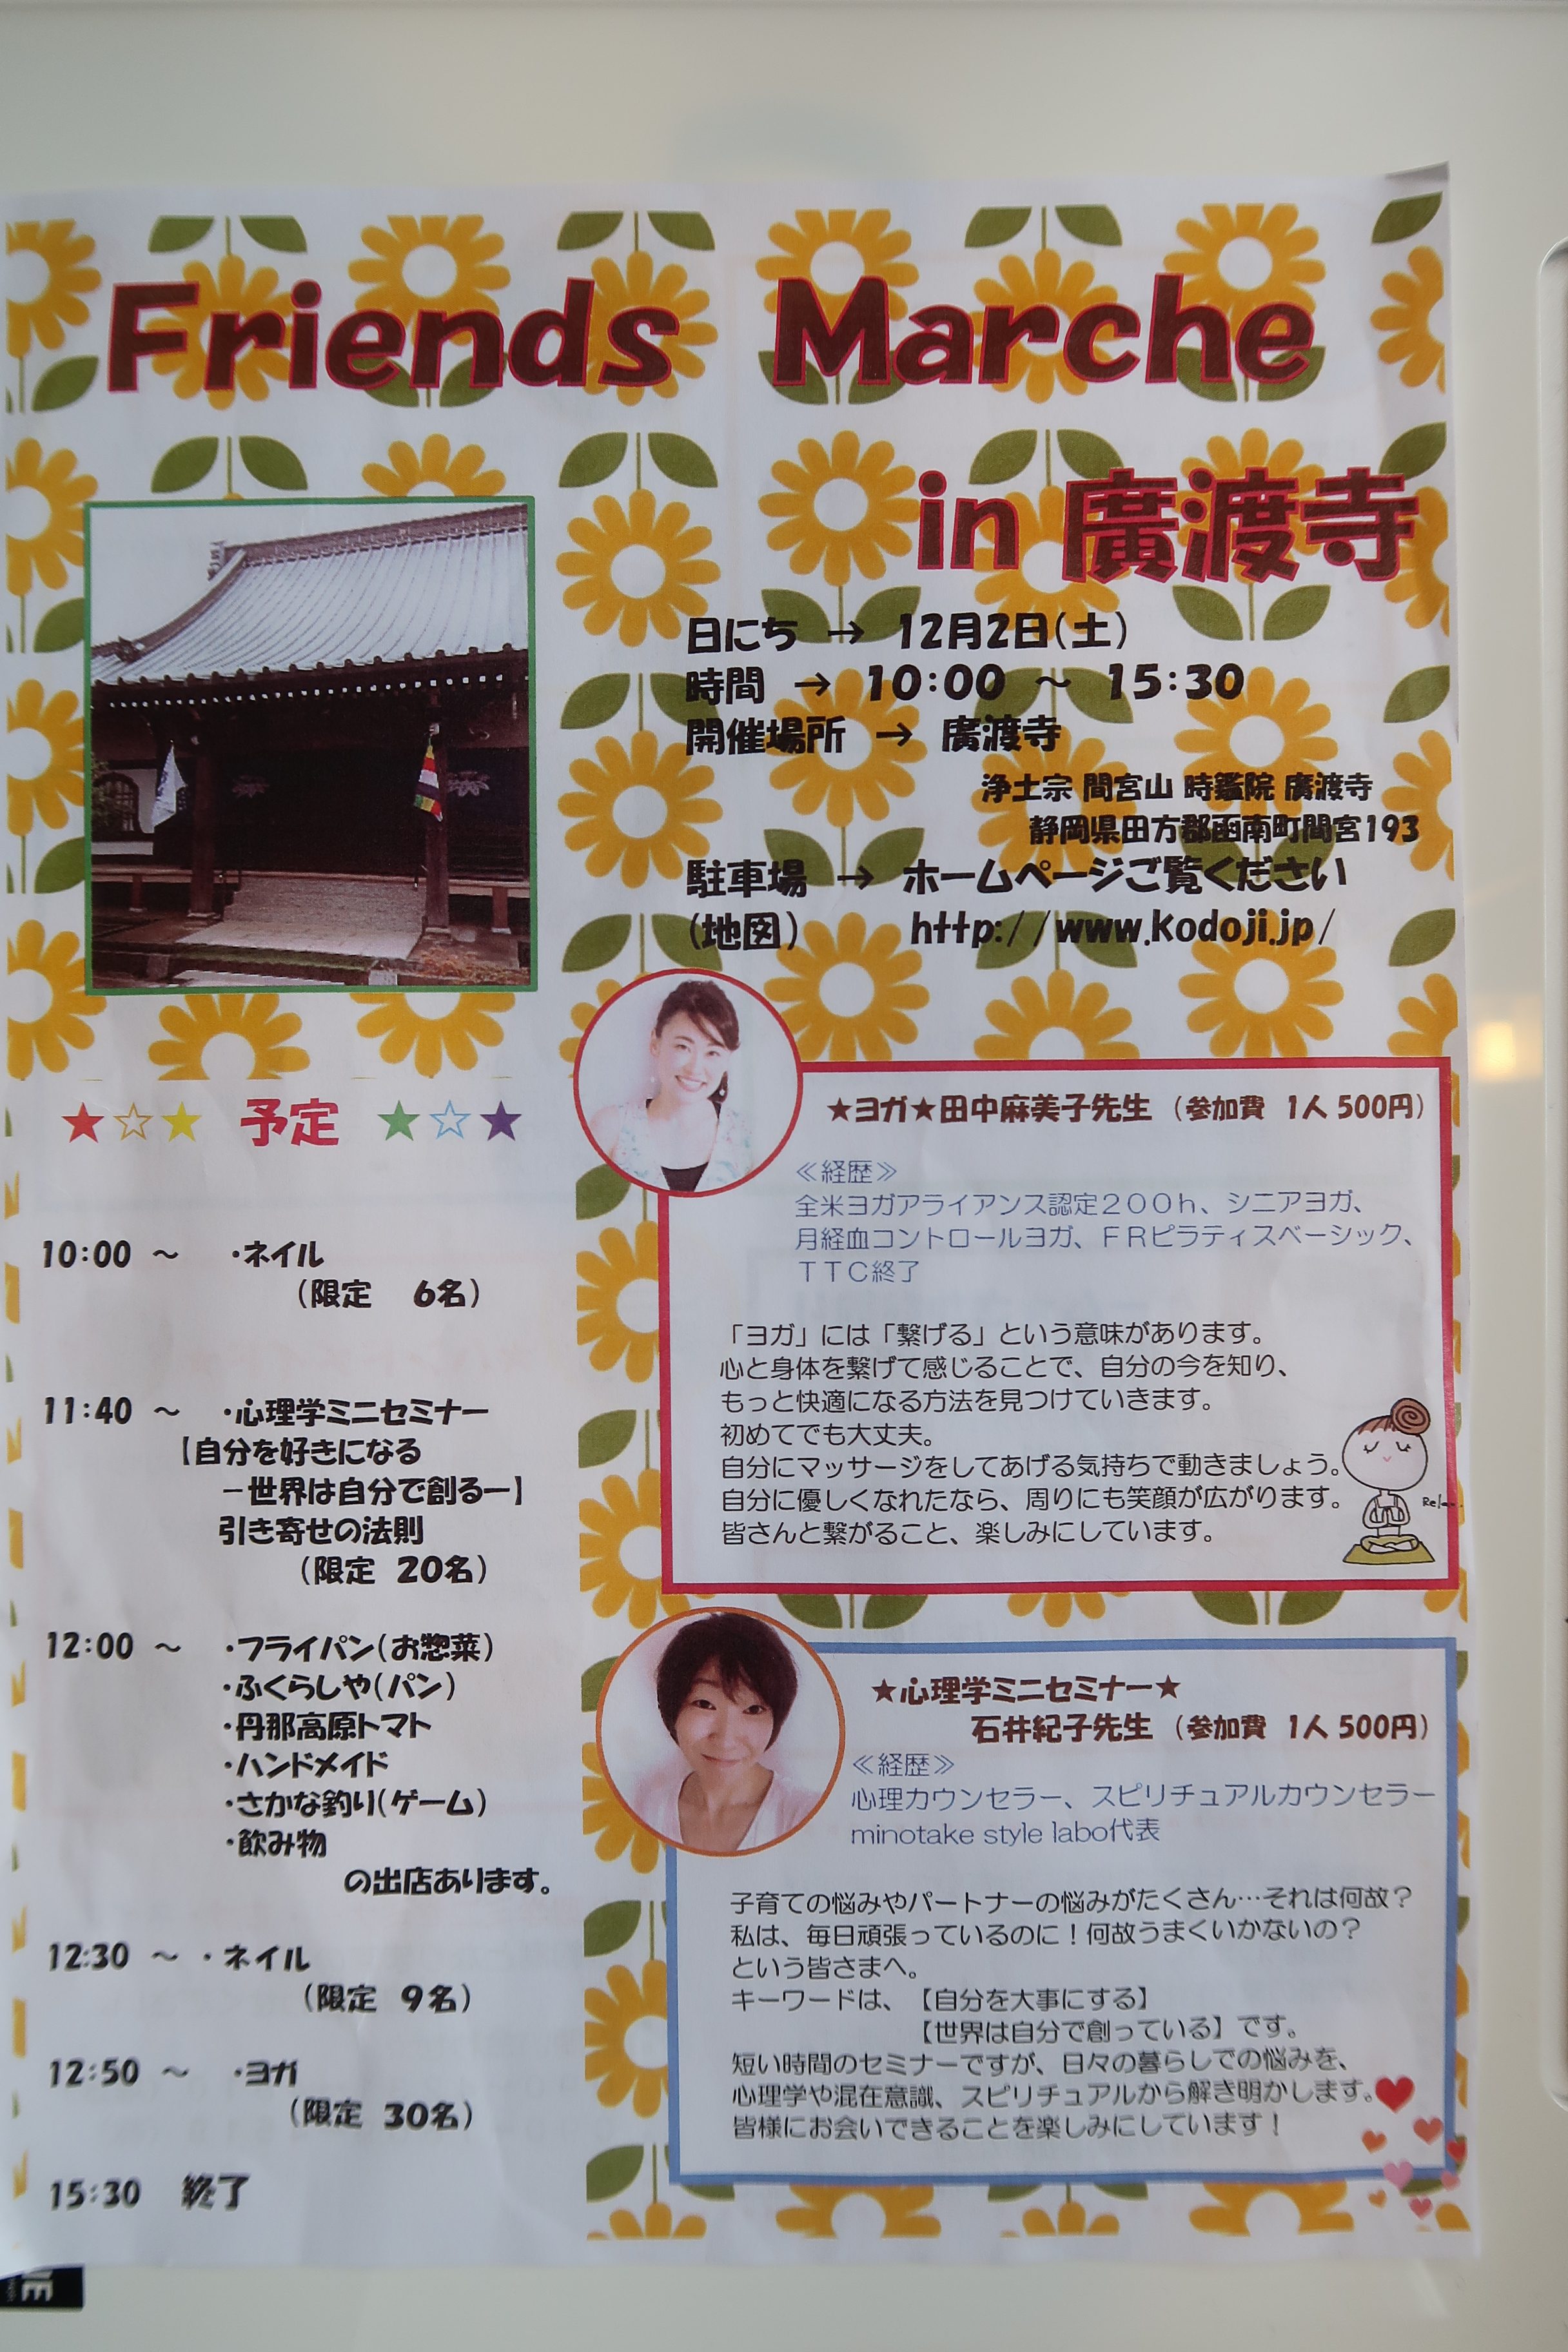 Friends Marche
in 廣渡寺
日にち → 12月2日(土)
時間 → 10:00 ～ 15:30
開催場所 → 廣渡寺
浄土宗 間宮山 時鑑院 廣渡寺
静岡県田方郡函南町間宮193
駐車場 → ホームページご覧ください
(地図) http://www.kodoji.jp/
★☆★ 予定 ★☆★
10:00 ～ ・ネイル
(限定 6名)
11:40 ～ ・心理学ミニセミナー
【自分を好きになる
－世界は自分で創るー】
引き寄せの法則
(限定 20名)
12:00 ～ ・フライパン(お惣菜)
・ふくらしや(パン)
・丹那高原トマト
・ハンドメイド
・さかな釣り(ゲーム)
・飲み物
の出店あります。
12:30 ～ ・ネイル
(限定 9名)
12:50 ～ ・ヨガ
(限定 30名)
15:30 終了
★ヨガ★田中麻美子先生 (参加費 1人 500円)
≪経歴≫
全米ヨガアライアンス認定２００ｈ、シニアヨガ、
月経血コントロールヨガ、ＦＲピラティスベーシック、
ＴＴＣ終了
「ヨガ」には「繋げる」という意味があります。
心と身体を繋げて感じることで、自分の今を知り、
もっと快適になる方法を見つけていきます。
初めてでも大丈夫。
自分にマッサージをしてあげる気持ちで動きましょう。
自分に優しくなれたなら、周りにも笑顔が広がります。
皆さんと繋がること、楽しみにしています。
★心理学ミニセミナー★
石井紀子先生 (参加費 1人 500円)
≪経歴≫
心理カウンセラー、スピリチュアルカウンセラー
minotake style labo代表
子育ての悩みやパートナーの悩みがたくさん…それは何故？
私は、毎日頑張っているのに！何故うまくいかないの？
という皆さまへ。
キーワードは、【自分を大事にする】
【世界は自分で創っている】です。
短い時間のセミナーですが、日々の暮らしでの悩みを、
心理学や混在意識、スピリチュアルから解き明かします。
皆様にお会いできることを楽しみにしています！